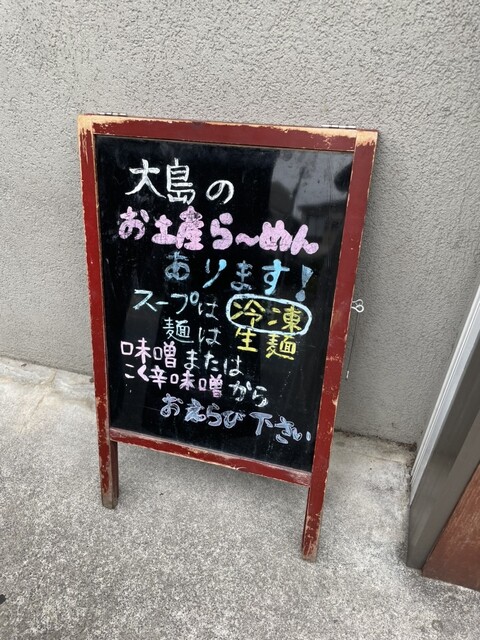 大島の
お土産ら〜めん
あります!
スープは冷凍
麺は生麺
味噌または
こく辛味噌から
おえらび下さい